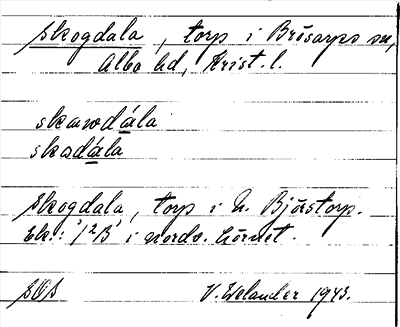 Skogdala, torp i Brösarps sn,
Albo hd, Krist. l.
skawdåla
skadåla
Skogdala, torp i N. Björstorp.
Ek.: '1²B' i nordv. hörnet.
V. Welander 1943.